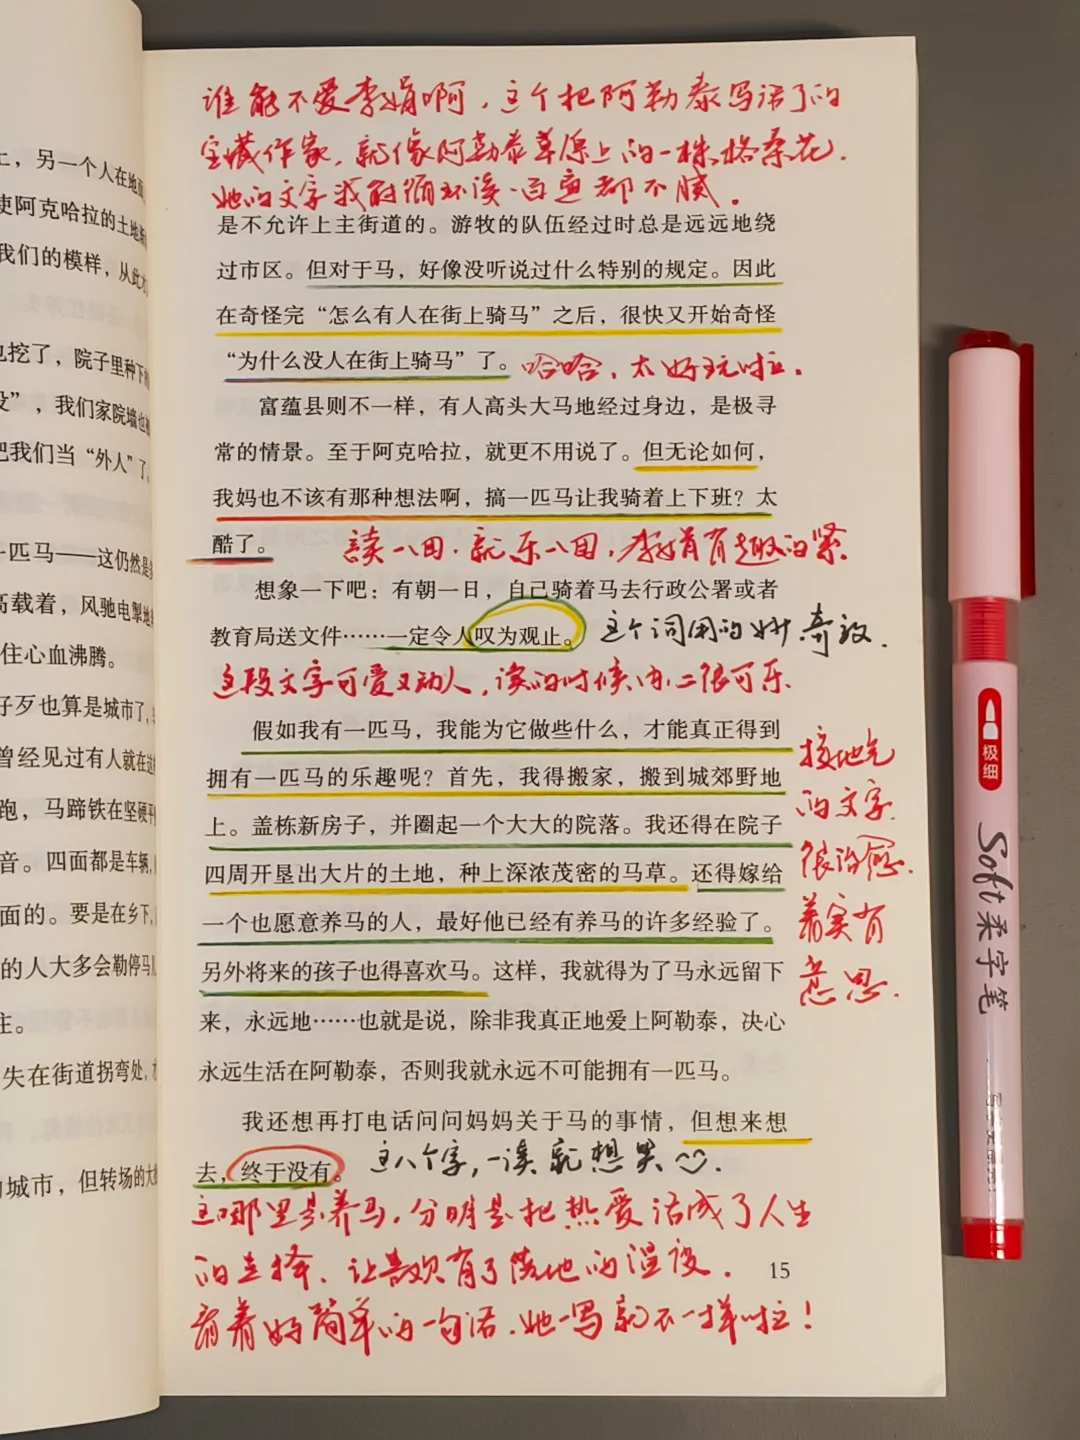 上，另一个人在地面
使阿克哈拉的土地
我们的模样，从此
也挖了，院子里种下
没”，我们家院墙也
把我们当“外人”了。
一匹马——这仍然是
高载着，风驰电掣地
住心血沸腾。
好歹也算是城市了，
曾经见过有人就在这
跑，马蹄铁在坚硬平
音。四面都是车辆，
面的。要是在乡下，
的人大多会勒停马
主。
失在街道拐弯处，
的城市，但转场的大
谁能不爱李娟啊，这个把阿勒泰写活了的
宝藏作家，就像阿勒泰草原上的一株格桑花，
她的文字我能循环读一百遍都不腻。
是不允许上主街道的。游牧的队伍经过时总是远远地绕
过市区。但对于马，好像没听说过什么特别的规定。因此
在奇怪完“怎么有人在街上骑马”之后，很快又开始奇怪
“为什么没人在街上骑马”了。哈哈，太好玩啦。
富蕴县则不一样，有人高头大马地经过身边，是极寻
常的情景。至于阿克哈拉，就更不用说了。但无论如何，
我妈也不该有那种想法啊，搞一匹马让我骑着上下班？太
酷了。 读一回，就乐一回，李娟有趣的紧
想象一下吧：有朝一日，自己骑着马去行政公署或者
教育局送文件……一定令人叹为观止。这个词用的妙，奇效.
这段文字可爱又动人，读的时候，内心很可乐.
假如我有一匹马，我能为它做些什么，才能真正得到
拥有一匹马的乐趣呢？首先，我得搬家，搬到城郊野地
上。盖栋新房子，并圈起一个大大的院落。我还得在院子
四周开垦出大片的土地，种上深浓茂密的马草。还得嫁给
一个也愿意养马的人，最好他已经有养马的许多经验了。
另外将来的孩子也得喜欢马。这样，我就得为了马永远留下
来，永远地……也就是说，除非我真正地爱上阿勒泰，决心
永远生活在阿勒泰，否则我就永远不可能拥有一匹马。
接地气
的文字.
很治愈.
着实有
意思.
我还想再打电话问问妈妈关于马的事情，但想来想
去，终于没有。 这八个字，一读就想笑
这哪里是养马，分明是把热爱活成了人生
的选择，让喜欢有了落地的温度.
看着好简单的一句话，她一写就不一样啦！
15
极细
Soft 柔字笔